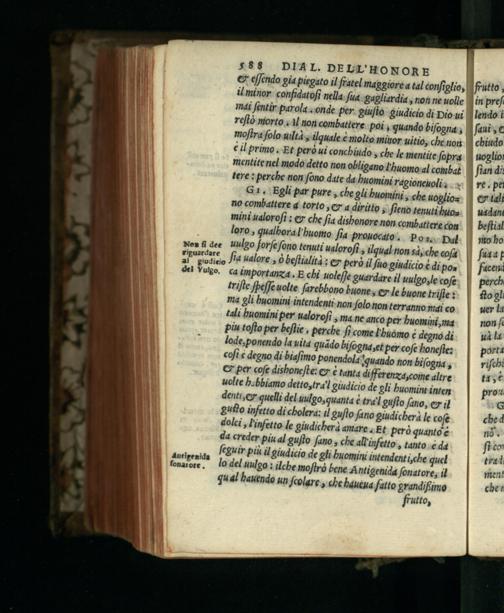 588 DIAL. DELL'HONORE
& essendo gia piegato il fratel maggiore a tal consiglio,
il minor confidatosi nella sua gagliardia, non ne uolle
mai sentir parola. onde per giusto giudicio di Dio ui
restò morto. Il non combattere poi, quando bisogna,
mostra solo uiltà, ilquale è molto minor uitio, che non
è il primo. Et però ui conchiudo, che le mentite sopra
mentite nel modo detto non obligano l'huomo al combat
tere: perche non sono date da huomini ragioneuoli.
GI. Egli par pure, che gli huomini, che uoglio=
no combattere a torto, & a diritto, sieno tenuti huo=
mini ualorosi: & che sia dishonore non combattere con
loro, qualhora l'huomo sia prouocato. POS. Dal
uulgo forse sono tenuti ualorosi, ilqual non sà, che cosa
sia ualore, ò bestialità: & però il suo giudicio è di po=
ca importanza. E chi uolesse guardare il uulgo, le cose
triste spesse uolte sarebbono buone, & le buone triste:
ma gli huomini intendenti non solo non terranno mai co
tali huomini per ualorosi, ma ne anco per huomini, ma
piu tosto per bestie. perche si come l'huomo è degno di
lode, ponendo la uita quãdo bisogna, et per cose honeste:
cosi è degno di biasimo ponendola quando non bisogna,
& per cose dishoneste: & è tanta differenza, come altre
uolte habbiamo detto, tra'l giudicio de gli huomini inten
denti, & quelli del uulgo, quanta è tra'l gusto sano, & il
gusto infetto di cholera: il gusto sano giudicherà le cose
dolci, l'infetto le giudicherà amare. Et però quanto è
da creder piu al gusto sano, che all'infetto, tanto è da
seguir più il giudicio de gli huomini intendenti, che quel
lo del uulgo: ilche mostrò bene Antigenida sonatore, il
qual hauendo un scolare, che haueua fatto grandissimo
frutto,
Non si dee
riguardare
al giudicio
del Vulgo.
Antigenida
sonatore.